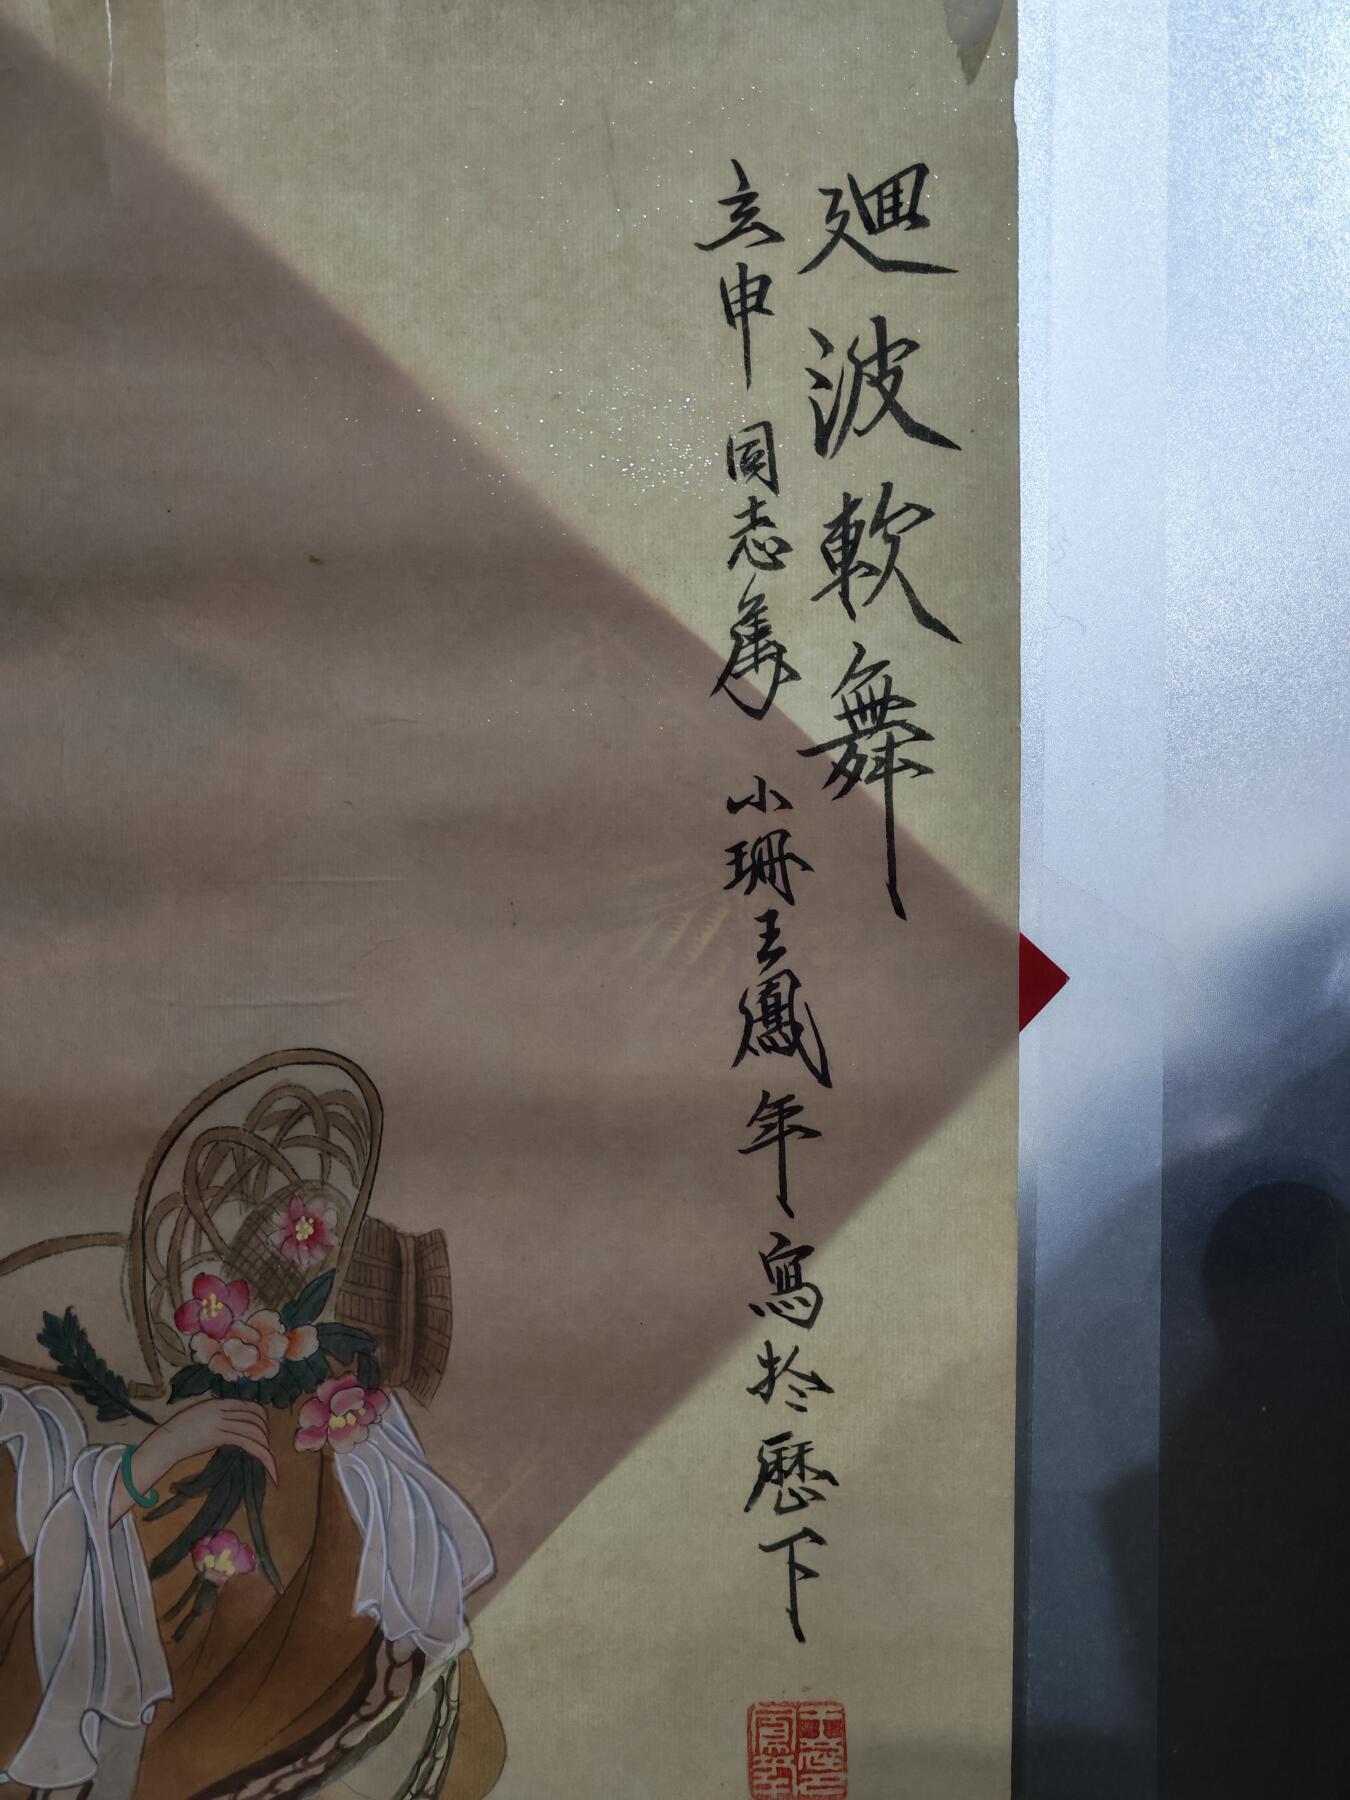 廻波軟舞
玄申同志雋 小珊王鳳年寫於歷下